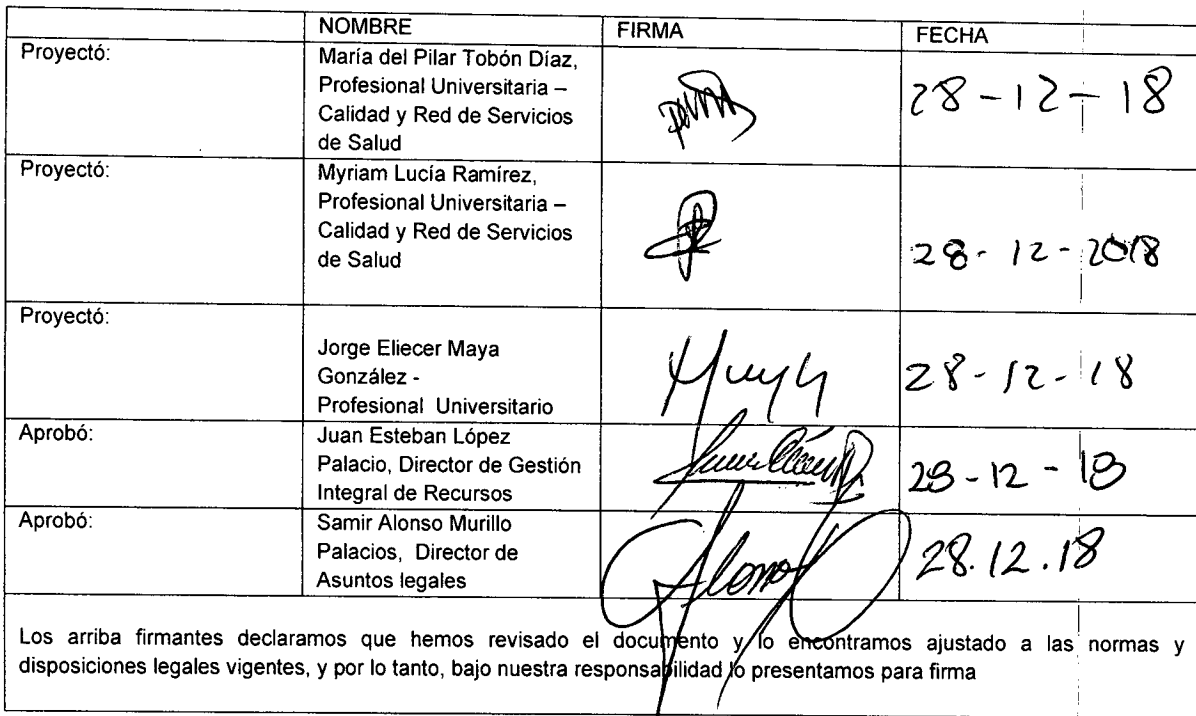 NOMBRE FIRMA FECHA
Proyectó: María del Pilar Tobón Díaz,
Profesional Universitaria –
Calidad y Red de Servicios
de Salud
28-12-18
Proyectó: Myriam Lucía Ramírez,
Profesional Universitaria –
Calidad y Red de Servicios
de Salud
28-12-2018
Proyectó:
Jorge Eliecer Maya
González -
Profesional Universitario
28-12-18
Aprobó: Juan Esteban López
Palacio, Director de Gestión
Integral de Recursos
28-12-18
Aprobó: Samir Alonso Murillo
Palacios, Director de
Asuntos legales
28.12.18
Los arriba firmantes declaramos que hemos revisado el documento y lo encontramos ajustado a las normas y
disposiciones legales vigentes, y por lo tanto, bajo nuestra responsabilidad lo presentamos para firma